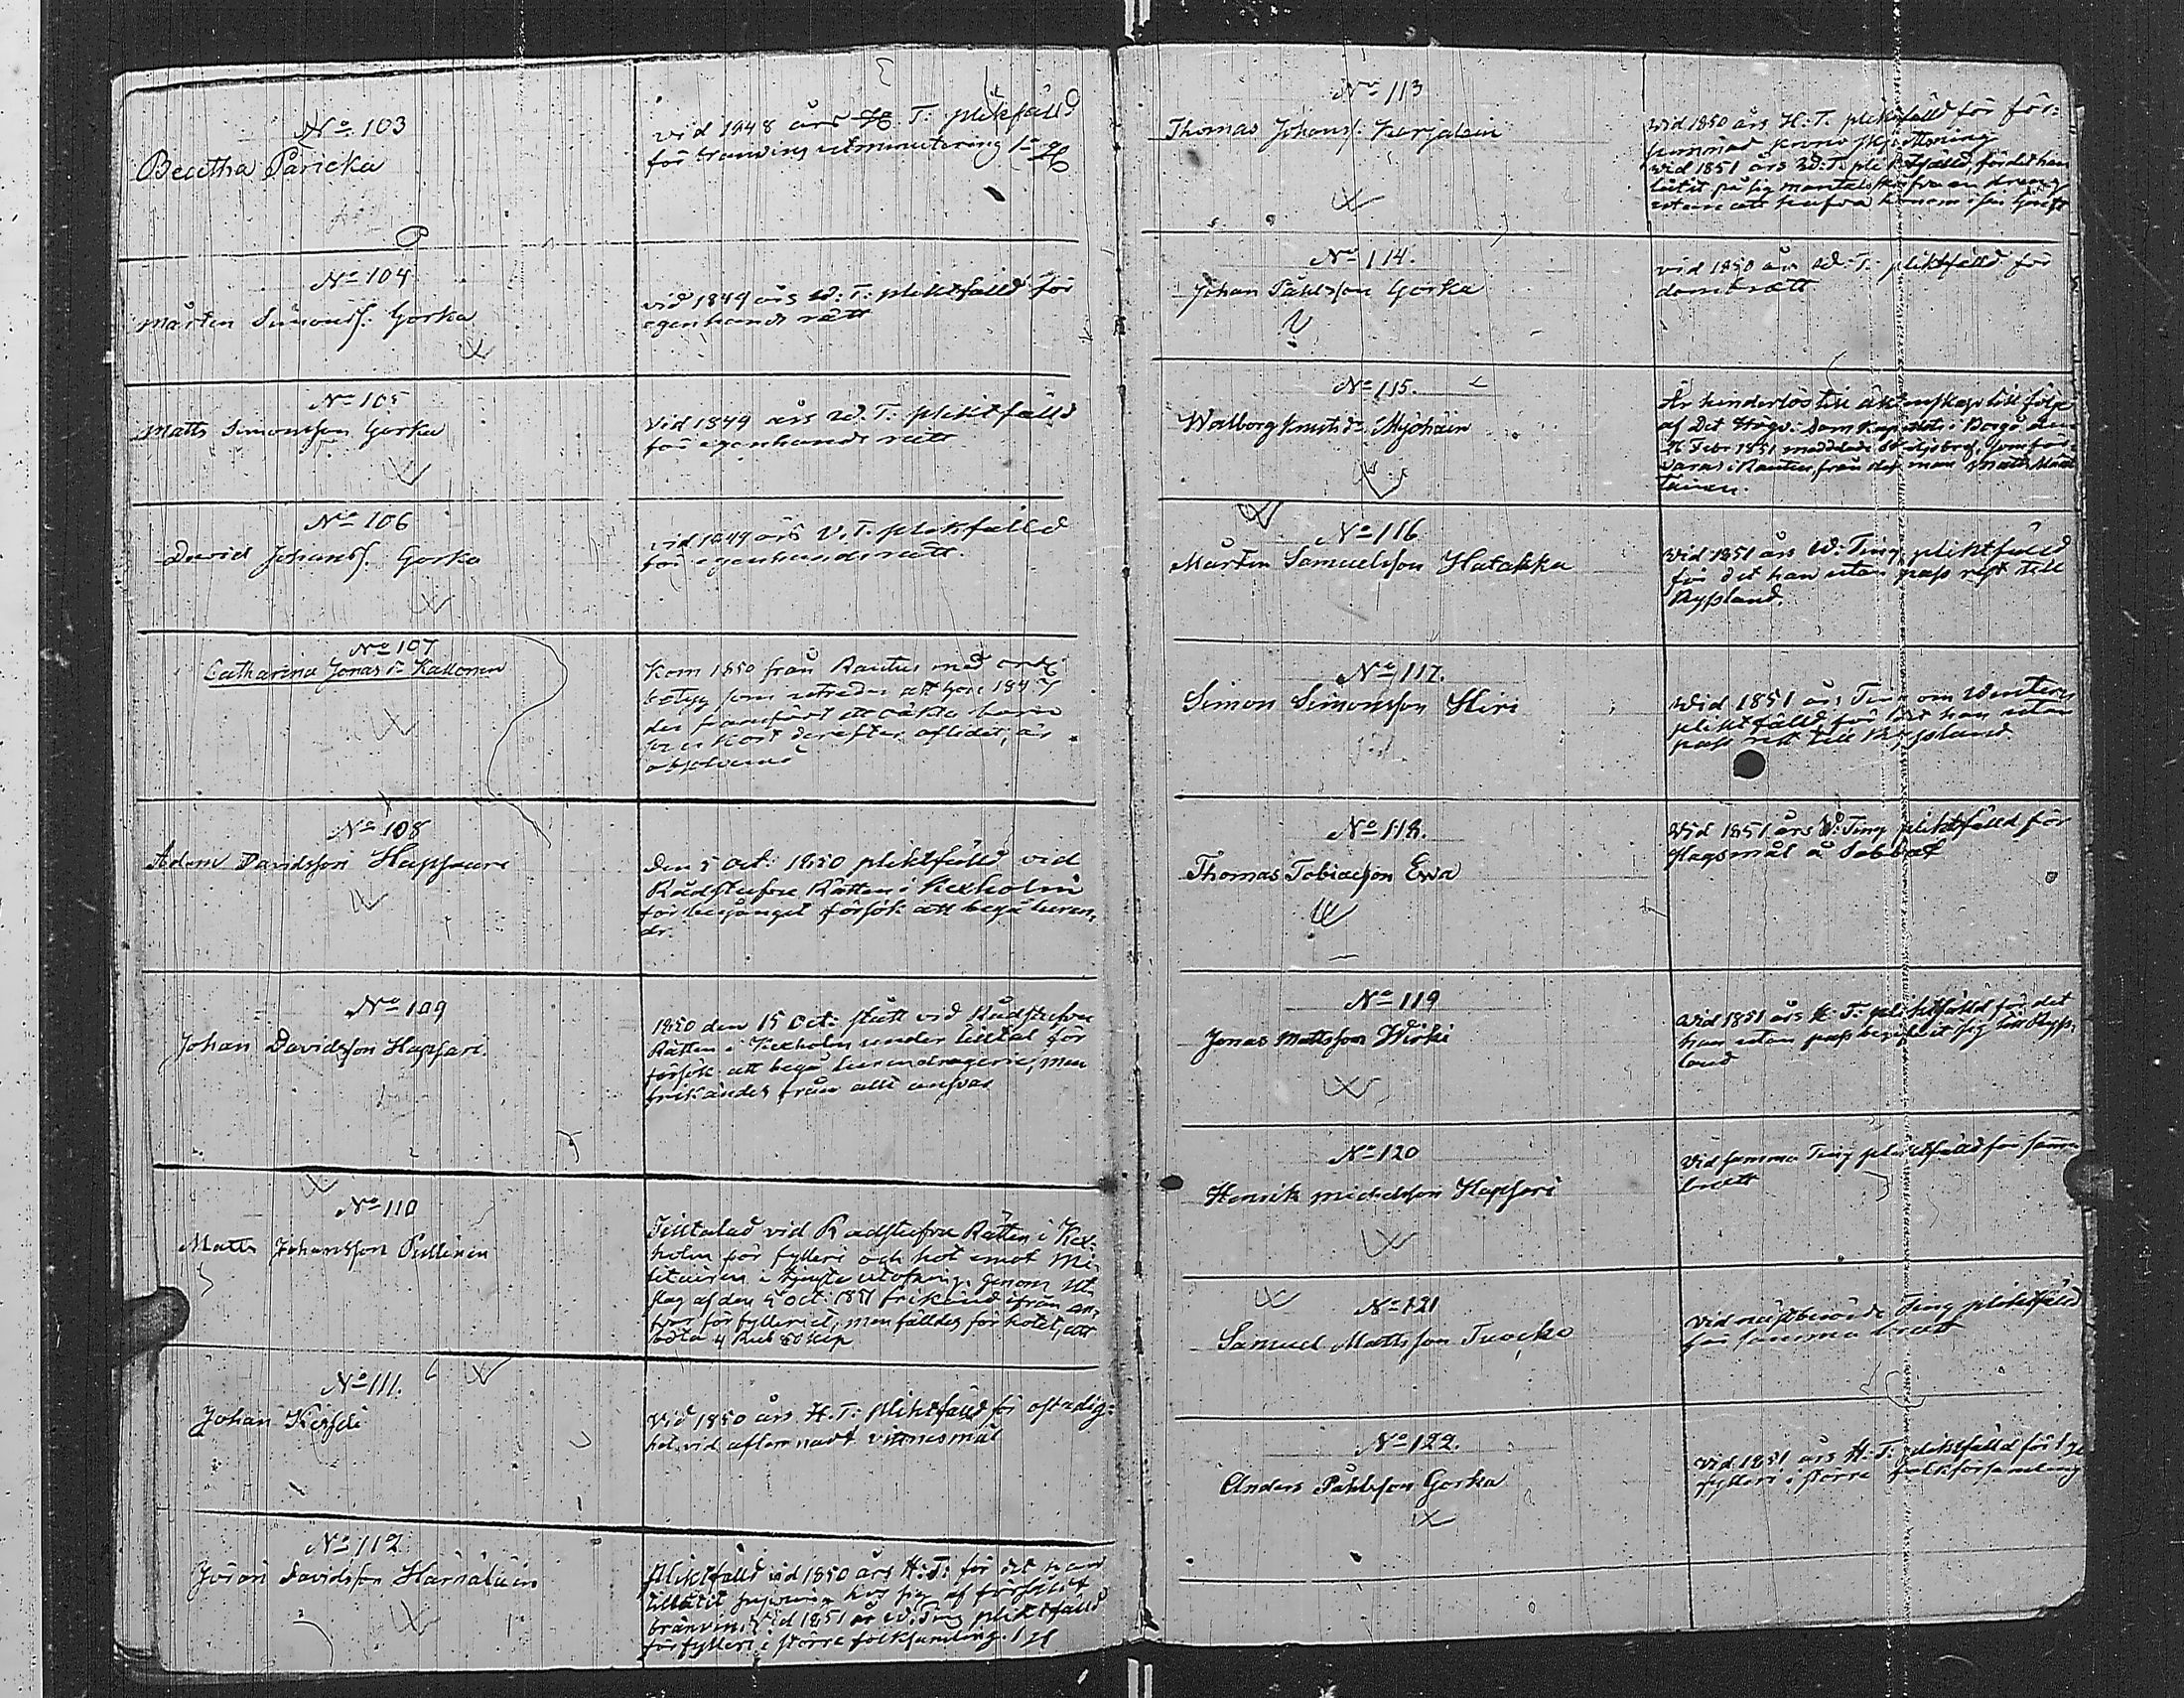 No 103
Beatha Paricka
vid 1848 års H T. pliktfälld
för bränvins utminutering 1sta g
No 104
Mårten Simonss. Gorka
vid 1849 års W: T: pliktfälld för
egenhands rätt
No 105
Matts Simonsson Gorka
Vid 1849 års W. T. pliktfälld
för egenhands rätt
No 106
David Johanss. Gorka
vid 1849 års V. T. pliktfälld
för egenhands rätt.
No 107
Catharina Jonas dr Kallonen
Kom 1850 från Rautus med
betyg som utreder att hon 184
der framfört ett oäkta barn
som kort derefter aflidit, är
absolverad
No 108
Adam Davidsson Hapsaari
Den 5 Oct: 1850 pliktfälld vid
Rådstufvu Rätten i Kexholm
för begånget försök att begå
No 109
Johan Davidsson Hapsari
1850 den 15 Oct: stått vid Rådstufvu
Rätten i Kexholm under tilltal för
försök att begå lurendrägerie, men
frikändes från allt ansvar
No 110
Matts Johansson Pullinen
Tilltalad vid Rådstufvu Rätten i Kex-
holm för fylleri och hot emot Mi-
litairen i tjenste utöfning. Genom ut-
slag af den 4 Oct: 1851 frikänd ifrån an-
svar för fylleriet, men fälldes för hotet, att
böta 4 Rub 80 kop
No 111.
Johan Kiiskli
Vid 1850 års H. T: pliktfälld för ostadig-
het vid aflemnadt vittnesmål
No 112
Jöran Davidsson Härsaläin
Pliktfälld vid 1850 års H: T: för det han
tillåtit supning hos sig af försålt
bränvin. Vid 1851 år W. Ting pliktfälld
för fylleri i större folksamling. 1 g
No 113
Thomas Johanss. Karjalain
Vid 1850 års H: T. pliktfälld för för-
summad krono skjutsning
Vid 1851 års W: T. pliktfälld, för det han
låtit på sig mantalsskrifva en dräng
utan att hafva honom i sin tjenst
No 114.
Johan Påhlsson Gorka
vid 1850 års W: T: pliktfälld för
dombrott
No 115.
Walborg Knuts dr Myöhäin
Är hinderlös till äktenskap till följe
af Det Högv: Dom Kapitlets i Borgå den
26 Febr 1851 meddelade skiljobref, som för-
varas i Rautus från dess man Matts
No 116
Mårten Samuelsson Hatakka
Vid 1851 års W: Ting pliktfälld
för det han utan pass rest till
Ryssland.
No 117.
Simon Simonsson Hiri
Vid 1851 års Ting om Wintern
pliktfälld, för det han utan
pass rest till Ryssland
No 118.
Thomas Tobiasson Ewa
Vid 1851 års W: Ting pliktfälld för
slagsmål å Sabbat
No 119
Jonas Mattsson Wirki
Vid 1851 års H. T: pliktfälld för det
han utan pass begifvit sig till Ryss-
land
No 120
Henrik Michelsson Hapsari
Vid samma Ting pliktfälld för samma
brott
No 121
Samuel Mattsson Tuocko
Vid nästberörde Ting pliktfälld
för samma brott
No 122.
Anders Påhlsson Gorka
Vid 1851 års H: T: pliktfälld för 1 g
fylleri i större folkförsamling